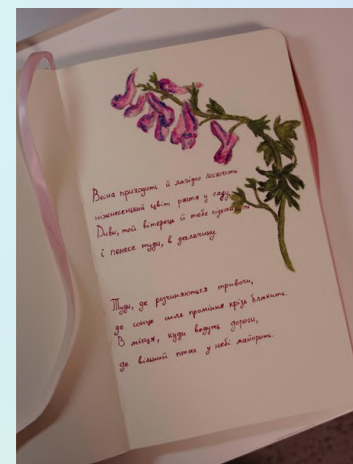 Весна приходить й лагідно лоскоче
ніжнесенький цвіт ряст у саду.
Диви, той вітерець й тебе
і понесе туди, в далечину.
Туди, де розчиняються тривоги,
де сонце шле проміння крізь блакить.
В місця, куди ведуть дороги,
де вільний птах у небі майорить.